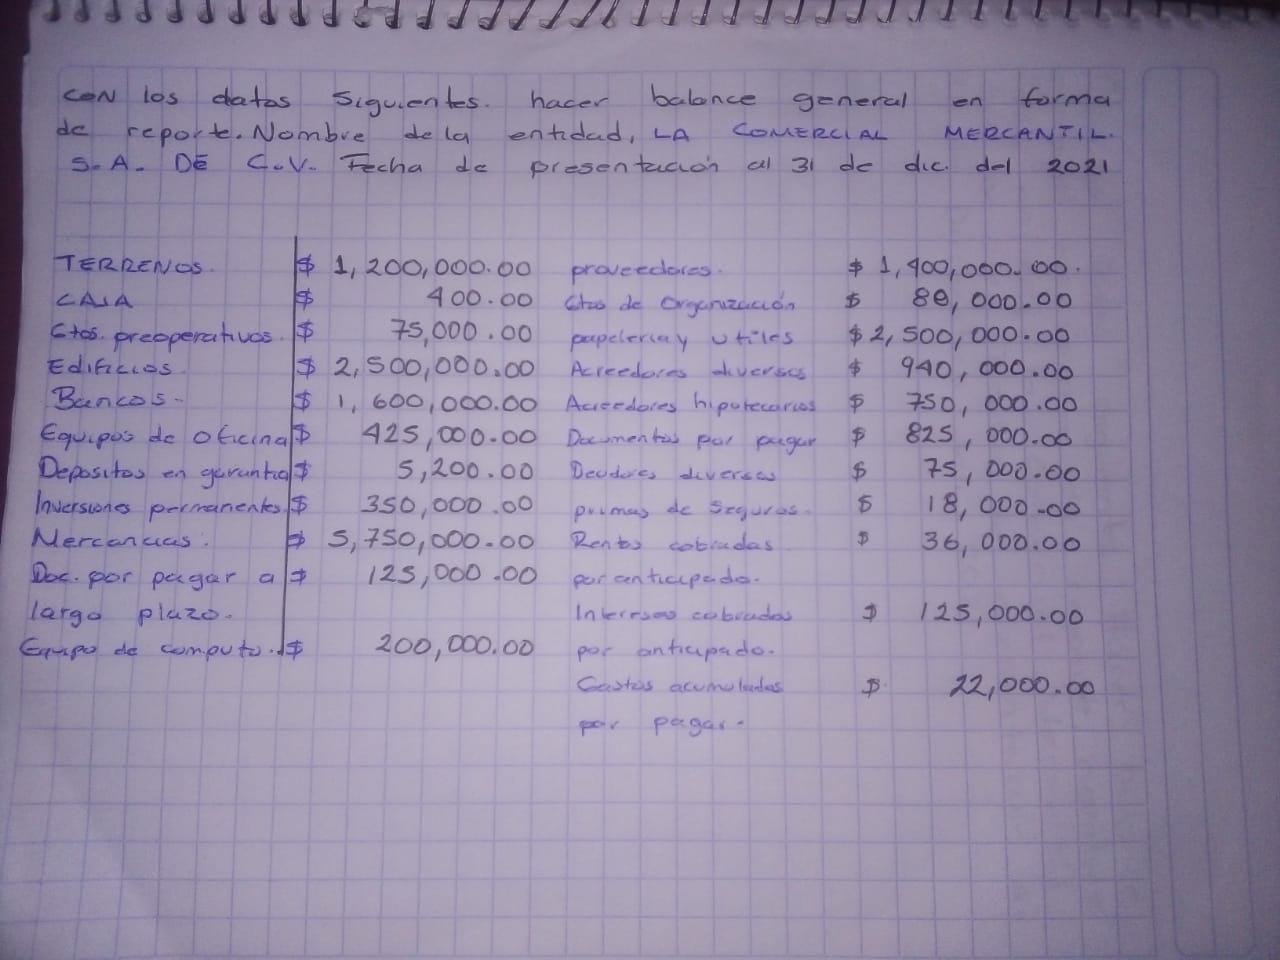 CON los datos siguientes. hacer balance general en forma
de reporte. Nombre de la entidad, LA COMERCIAL MERCANTIL.
S.A. DE C.V. Fecha de presentación al 31 de dic. del 2021
TERRENOS. $ 1,200,000.00 proveedores. $ 1,400,000.00.
CAJA $ 400.00 Gtos de Organización $ 80,000.00
Gtos. preoperativos. $ 75,000.00 papeleria y utiles $ 2,500,000.00
Edificios. $ 2,500,000.00 Acreedores diversos $ 940,000.00
Bancos. $ 1,600,000.00 Acreedores hipotecarios $ 750,000.00
Equipos de oficina $ 425,000.00 Documentos por pagar $ 825,000.00
Depositos en garantia $ 5,200.00 Deudores diversos $ 75,000.00
Inversiones permanentes $ 350,000.00 primas de seguros. $ 18,000.00
Mercancias. $ 5,750,000.00 Rentas cobradas $ 36,000.00
Doc. por pagar a $ 125,000.00 por anticipado.
largo plazo. Intereses cobrados $ 125,000.00
Equipo de computo. $ 200,000.00 por anticipado.
Gastos acumulados $ 22,000.00
por pagar.